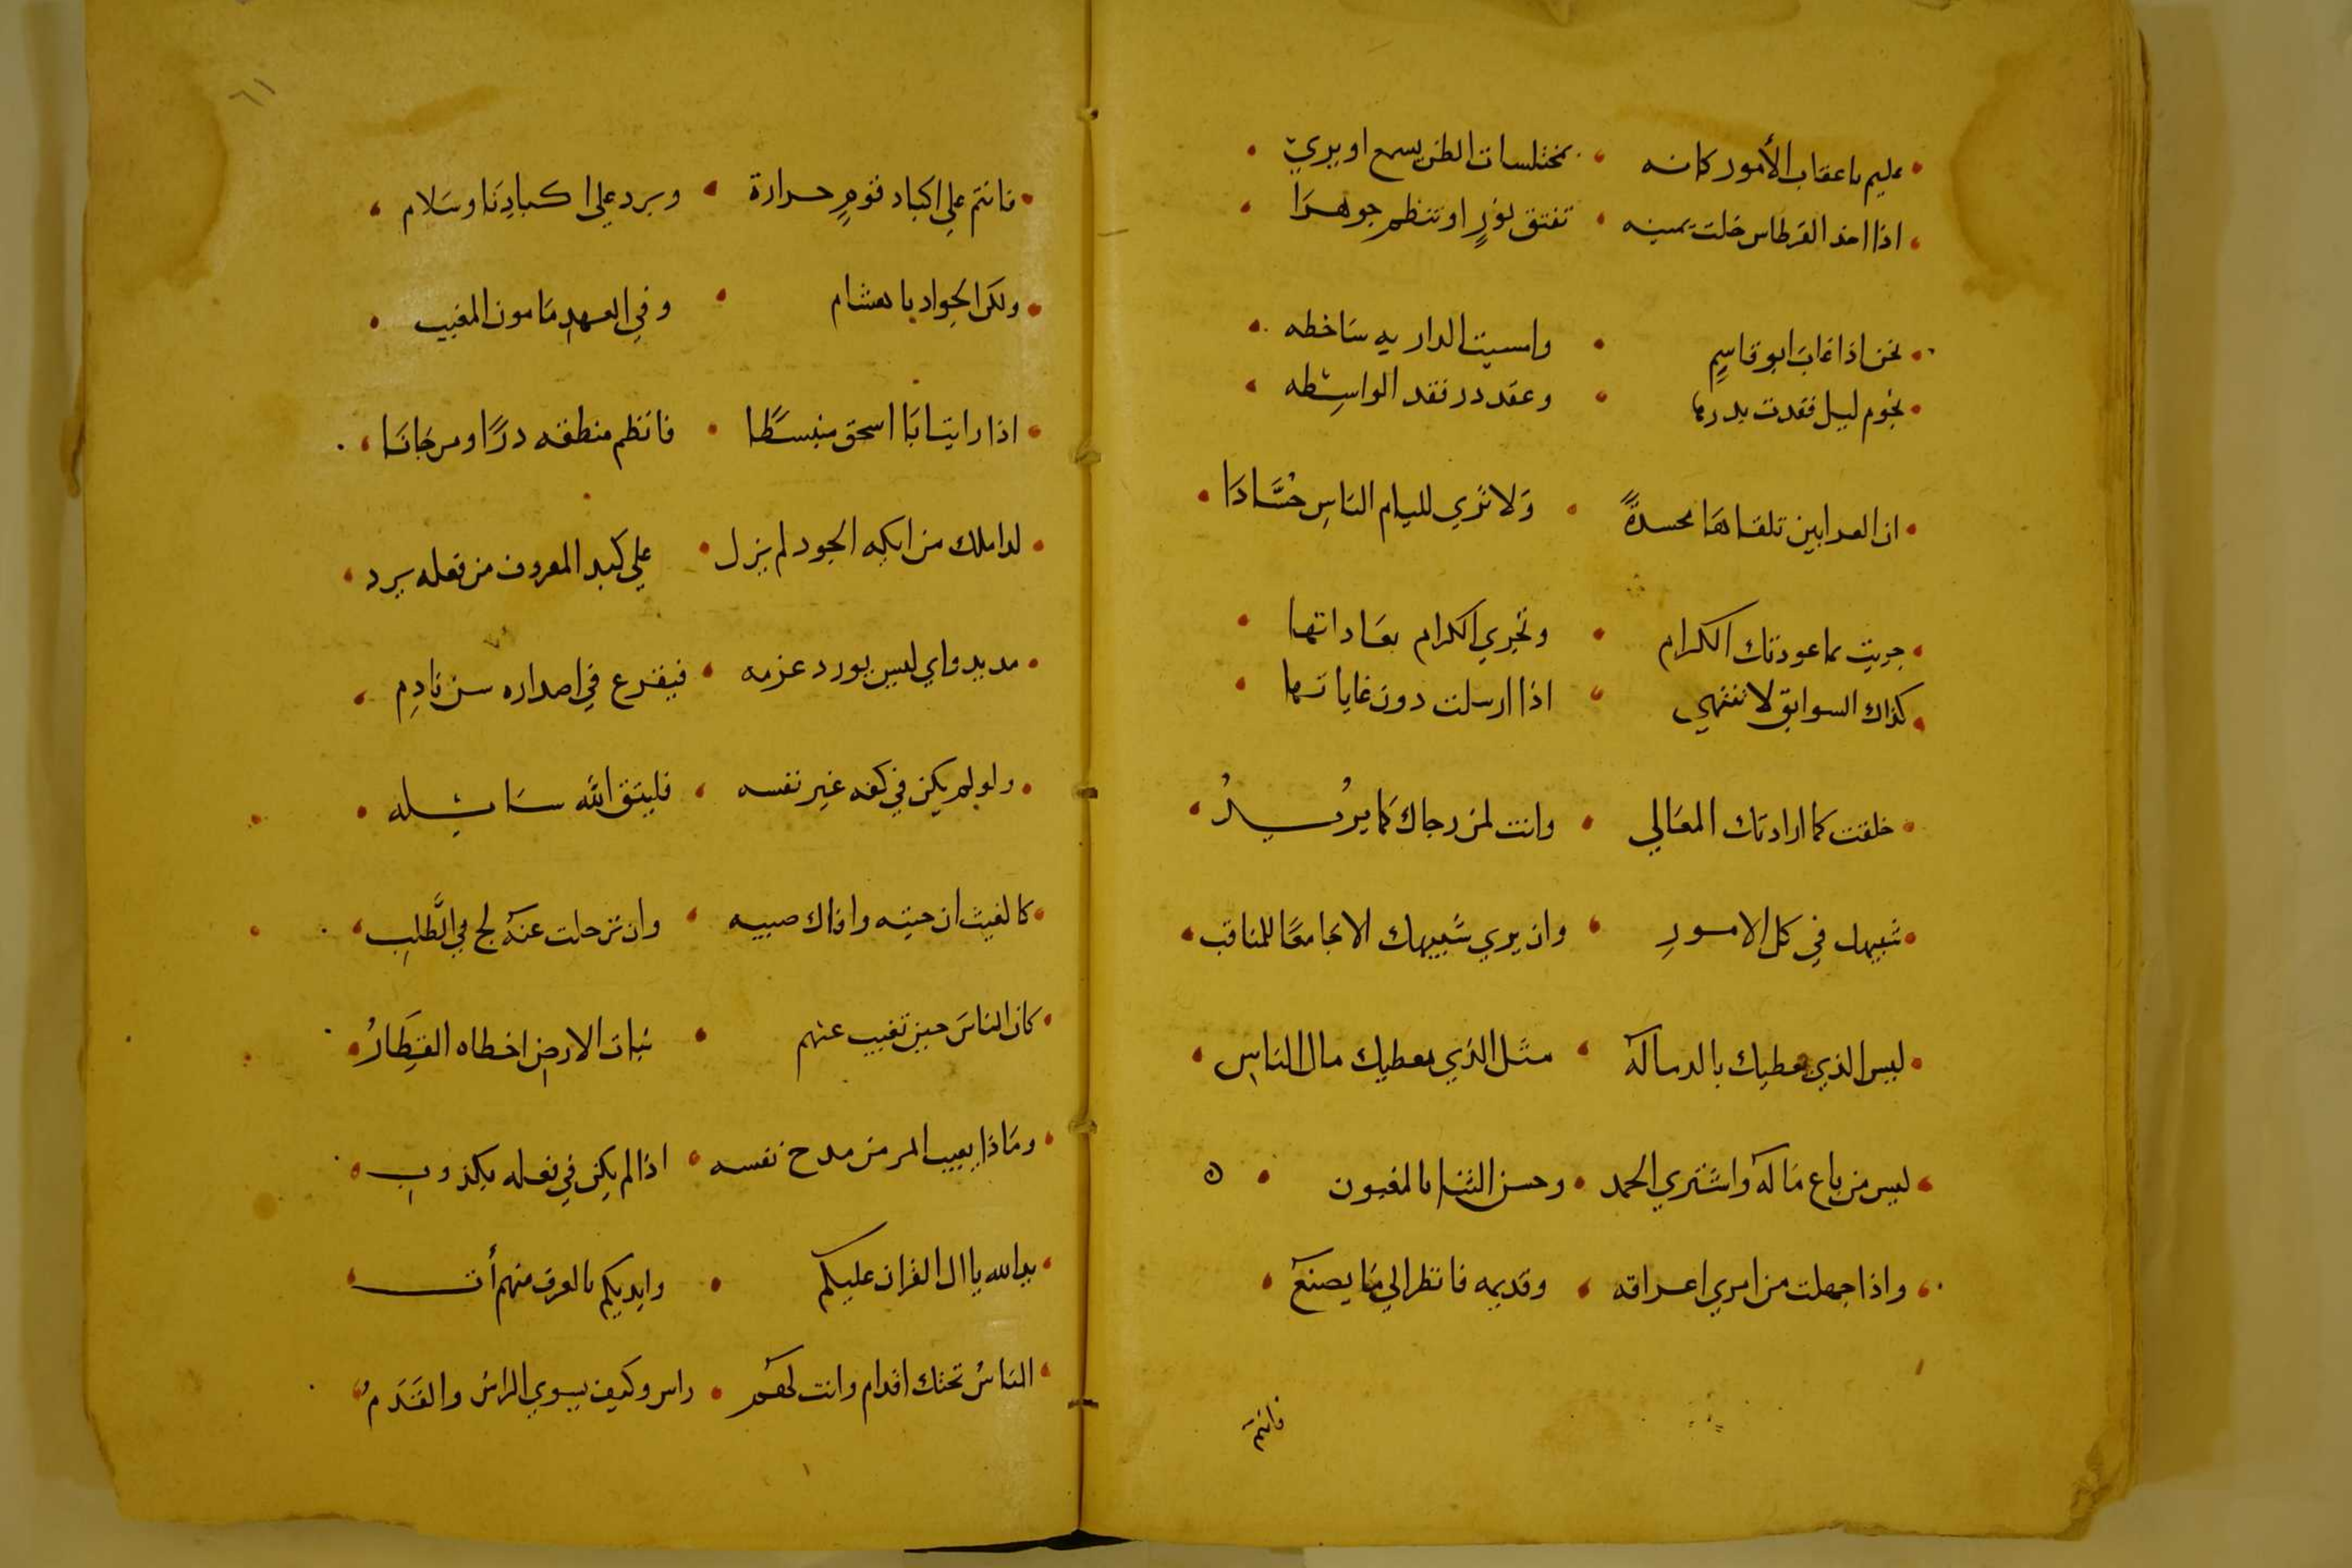 عليم باعقاب الأمور كانه • بمختلسات الظن يسمع او يري
اذا اخذ القرطاس خلت يمينه • تفتق نورٍ او تنظم جوهرَا
نحن اذا غابَ ابو قاسِمٍ • وامسيت الدار به سَاخطه
نجوم ليل فقدت بدرها • وعقد در فقد الواسِطه
ان العرانين تلقاهَا محسدةً • وَلا تَري لليام الناسِ حُسَّادَا
جريت بما عودتك الكرام • وتجري الكرام بعَاداتها
كذاك السوابق لا تنتهي • اذا ارسلت دون غاياتها
خلقت كما ارادتك المعَالي • وانت لمن رجاك كما يريدُ
شبيهك في كل الامورِ • وان يري شبيهك الا جَامعًا للمناقب
ليس الذي يعطيك بالد ماله • مثل الذي يعطيك مال الناسِ
ليس من باع مَاله واشتري الحمد • وحسن الثنا بالمغبون
واذا جهلت من امري اعراقه • وقديمه فانظر الي مَا يصنع
فانتم
٦١
فانتم علي اكباد قومٍ حرارة • وبرد علي اكبادِنَا وسَلام
ولكن الجواد با هشام • وفي العهدِ مَامون المغيب
اذا رايت ابَا اسحق منبسَطًا • فانظم منطقه درًا ومرجَانَا
لدا ملك من ايكه الجود لم يزل • علي كبد المعروف من فعله برد
مديد واي ليس يورد عزمه • فيقرع في اصداره سن نادِم
ولو لم يكن في كفه غير نفسه • فليتق الله سَايله
كالغيث ان جيته وافاك صيبه • وان ترحلت عنه لج في الطَّلبِ
كان الناسَ حين تغيب عنهم • نبات الارض اخطاه القِطَارُ
ومَاذا يعيب المر من مدح نفسه • اذا لم يكن في فعله بكذوبِ
يد الله يا ال الفرات عليكم • وايديكم بالعرف منهم أت
الناسُ تحتك اقدام وانت لهُم • راس وكيف يسوي الراسُ والقَدَمُ